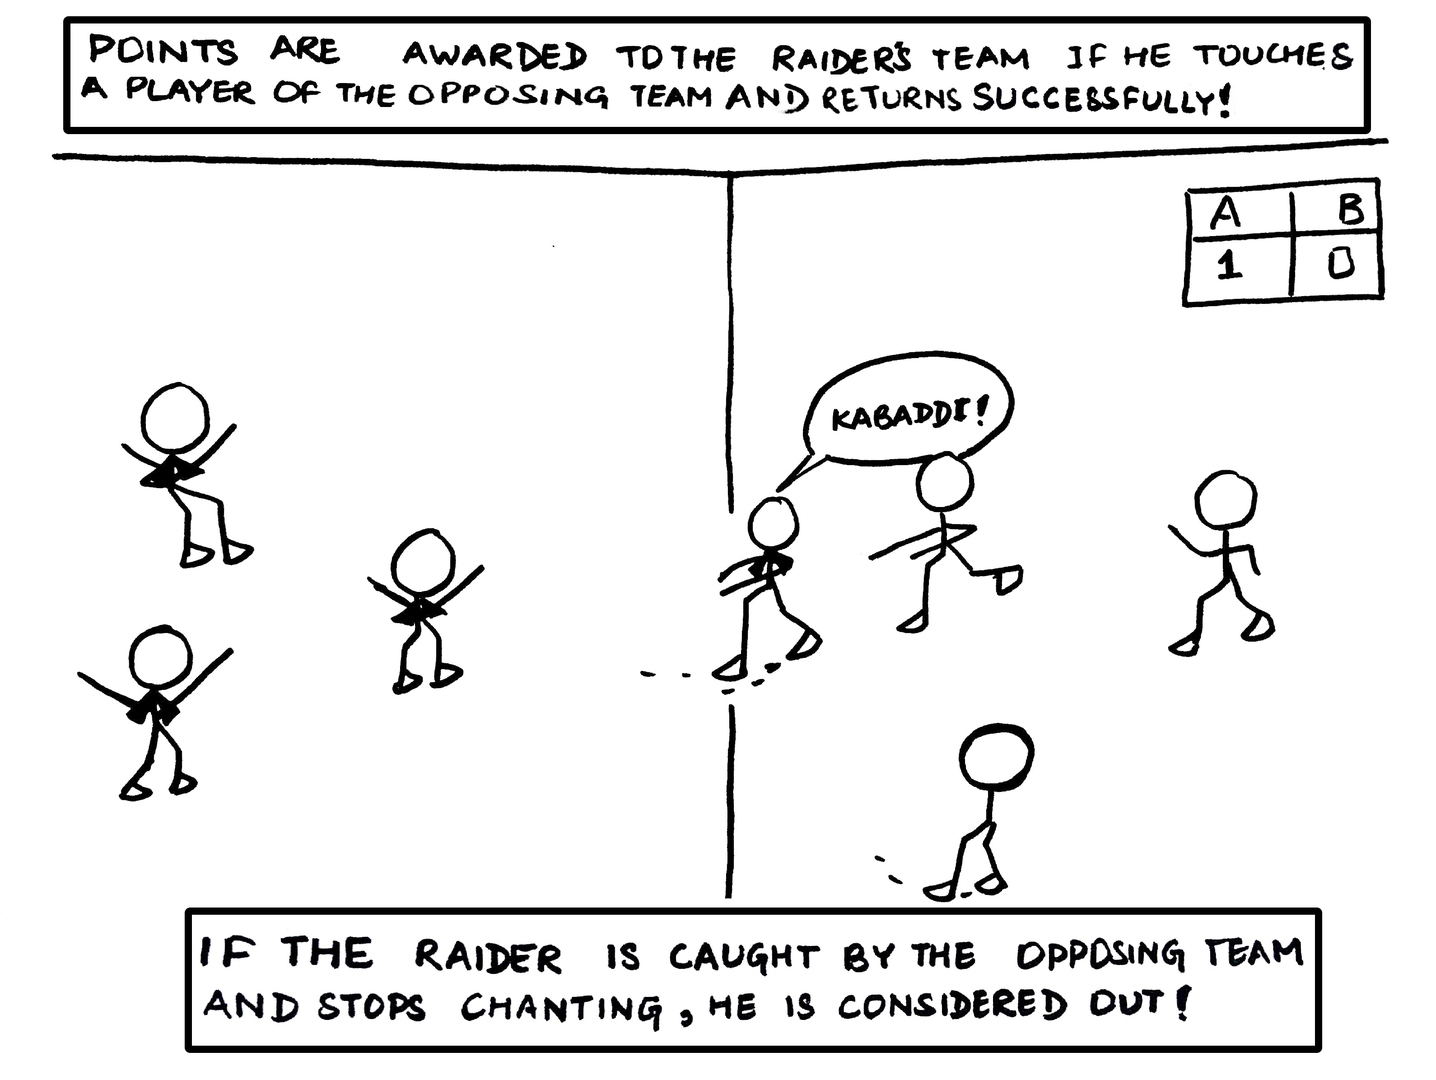 POINTS ARE AWARDED TO THE RAIDER'S TEAM IF HE TOUCHES
A PLAYER OF THE OPPOSING TEAM AND RETURNS SUCCESSFULLY!
A B
1 0
KABADDI!
IF THE RAIDER IS CAUGHT BY THE OPPOSING TEAM
AND STOPS CHANTING, HE IS CONSIDERED OUT!